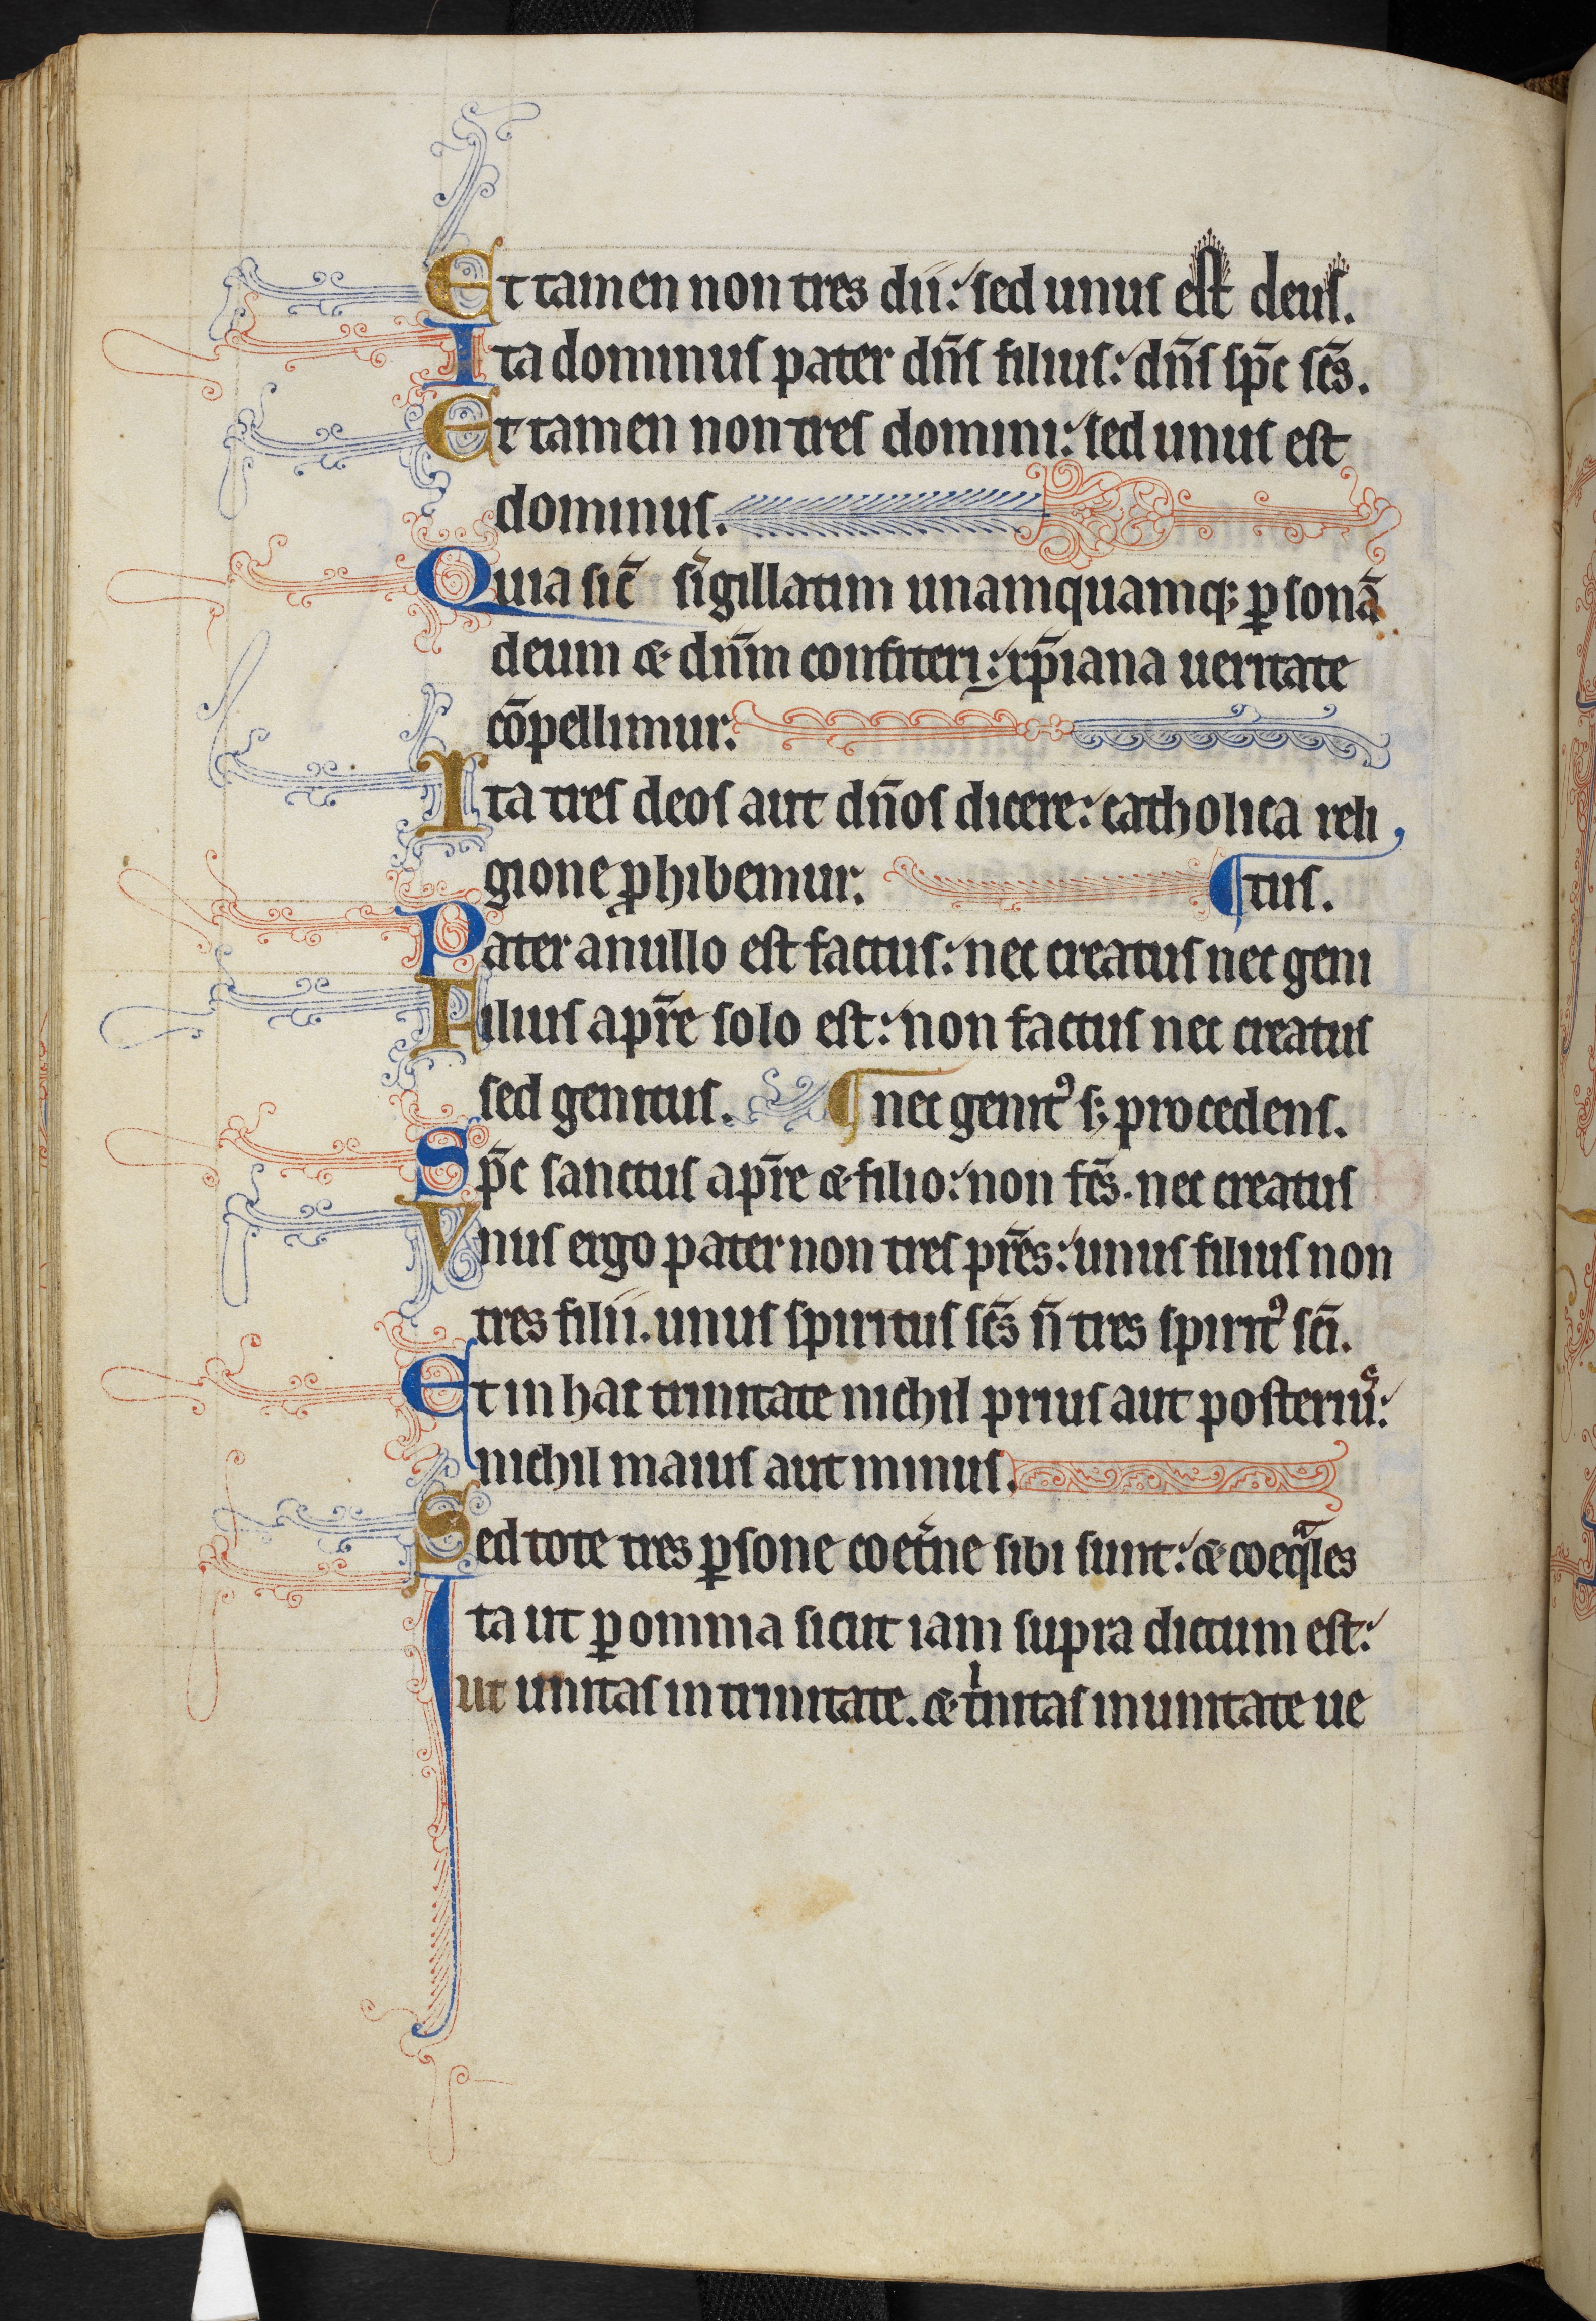 Et tamen non tres dii: sed unus est deus.
Ita dominus pater dn̄s filius: dn̄s sp̄c sc̄s.
Et tamen non tres domini: sed unus est
dominus.
Quia sic̄ singillatim unamquamq; ꝑsonā
deum & dn̄m confiteri: xp̄iana ueritate
cōpellimur.
Ita tres deos aut dn̄os dicere: catholica reli
gione ꝓhibemur. ¶tus.
Pater a nullo est factus: nec creatus nec geni
Filius a pr̄e solo est: non factus nec creatus
sed genitus. ¶ nec genitꝰ s; procedens.
Sp̄c sanctus a pr̄e & filio: non fc̄s. nec creatus
Vnus ergo pater non tres pr̄es: unus filius non
tres filii. unus spiritus sc̄s n̄ tres spiritꝰ sc̄i.
Et in hac trinitate nichil prius aut posteriuˢ:
nichil maius aut minus.
Sed tote tres ꝑsone coet̄ne sibi sunt: & coeqᵃles
Ita ut ꝑ omnia sicut iam supra dictum est:
ut unitas in trinitate. & tⁱnitas in unitate ue